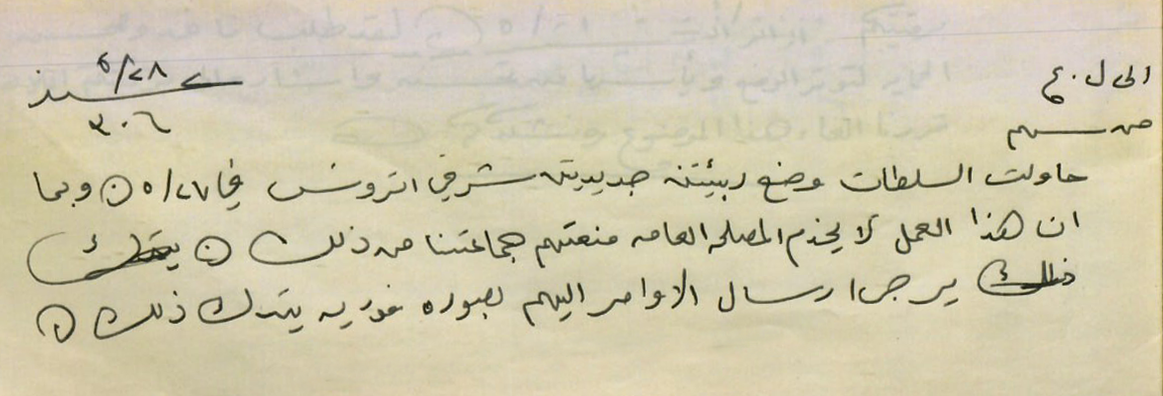 الى ل.ع
٥/٢٨
من سهم
٣٠٦
حاولت السلطات وضع ربيئتة جديديته شرقي اتروش في ٥/٢٧ ن وبما
ان هذا العمل لا يخدم المصلحه العامه منعتهم جماعتنا من ذلك ن
ذلك يرجى ارسال الاوامر اليهم بصوره فوريه بترك ذلك ن